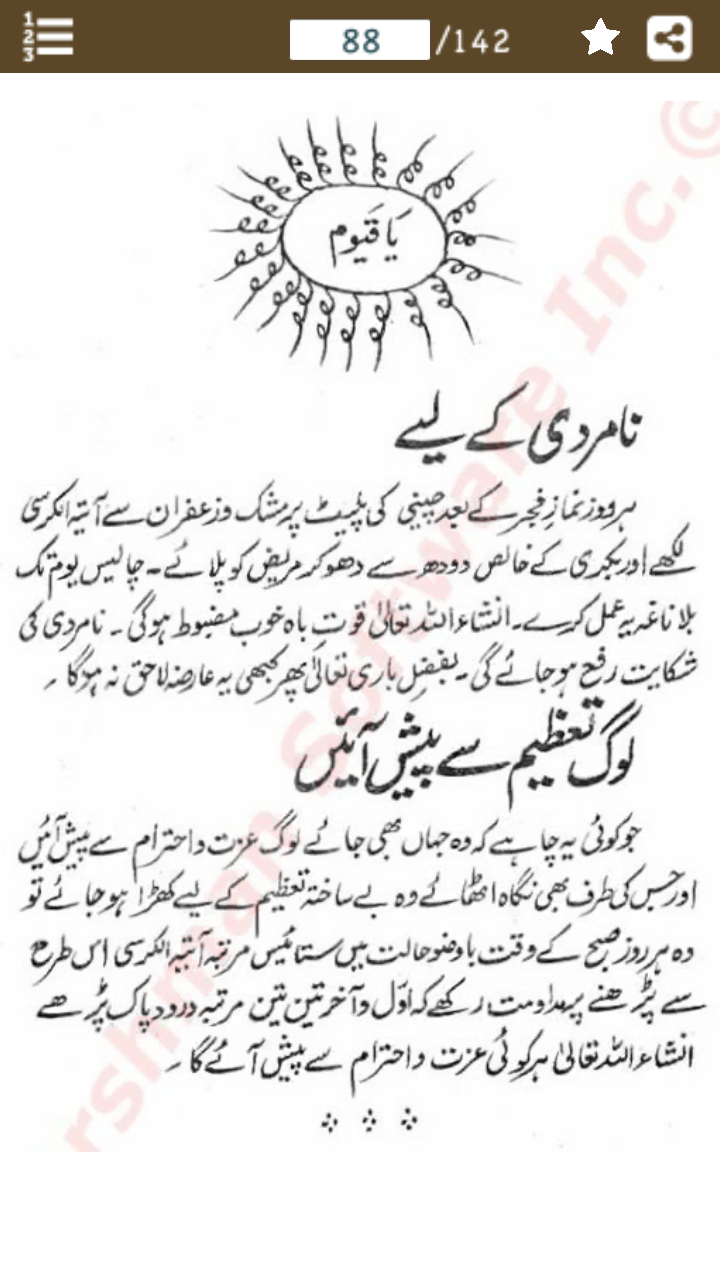 88 /142
یَا قَیُّوم
نامردی کے لیے
ہر روز نمازِ فجر کے بعد چینی کی پلیٹ پر مشک و زعفران سے آیۃ الکرسی
لکھے اور بکری کے خالص دودھ سے دھو کر مریض کو پلائے۔ چالیس یوم تک
بلا ناغہ یہ عمل کرے۔ انشاء اللہ تعالیٰ قوتِ باہ خوب مضبوط ہوگی۔ نامردی کی
شکایت رفع ہو جائے گی۔ بفضلِ باری تعالیٰ پھر کبھی یہ عارضہ لاحق نہ ہوگا۔
لوگ تعظیم سے پیش آئیں
جو کوئی یہ چاہے کہ وہ جہاں بھی جائے لوگ عزت و احترام سے پیش آئیں
اور جس کی طرف بھی نگاہ اٹھائے وہ بے ساختہ تعظیم کے لیے کھڑا ہو جائے تو
وہ ہر روز صبح کے وقت باوضو حالت میں ستائیس مرتبہ آیۃ الکرسی اس طرح
سے پڑھنے پر مداومت رکھے کہ اوّل و آخر تین تین مرتبہ درود پاک پڑھے
انشاء اللہ تعالیٰ ہر کوئی عزت و احترام سے پیش آئے گا۔
rshman Software Inc. ©